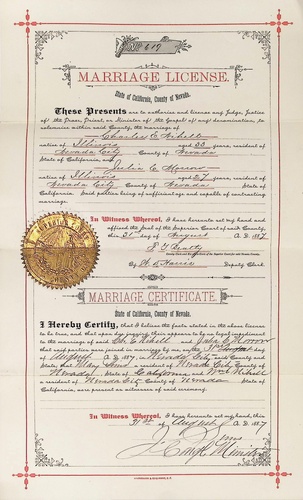 619
MARRIAGE LICENSE.
State of California, County of Nevada.
These Presents are to authorize and license any Judge, Justice
of the Peace, Priest, or Minister of the Gospel of any denomination, to
solemnize within said County, the marriage of
Charles E
native of Illinois aged 33 years, resident of
Nevada City County of Nevada
State of California, and
Julia C Morrow
native of Illinois aged 27 years, resident of
Nevada City County of Nevada State of
California. Said parties being of sufficient age and capable of contracting
marriage.
In Witness Whereof, I have hereunto set my hand and
affixed the Seal of the Superior Court of said County,
this 31st day of August A. D. 1887
Beatty
By Deputy Clerk.
MARRIAGE CERTIFICATE.
State of California, County of Nevada.
I Hereby Certify, that I believe the facts stated in the above license
to be true, and that upon due inquiry there appears to be no legal impediment
to the marriage of said and Julia C Morrow
that said parties were joined in marriage by me, on the day
of August A. D. 1887, in Nevada City said County
and State; that a resident of Nevada City County of
Nevada State of California and
a resident of Nevada City County of Nevada State of
California, were present as witnesses of said ceremony.
In Witness Whereof, I have hereunto set my hand, this
31st day of August A. D. 1887